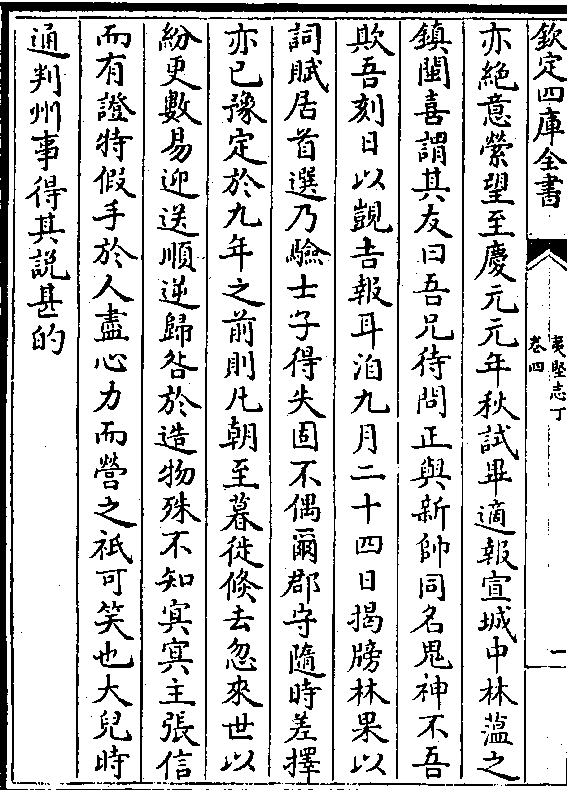 欽定四庫全書
夷堅志丁
卷四
一
亦絶意縈望至慶元元年秋試畢適報宣城中林薀之
鎮閩喜謂其友曰吾兄待問正與新帥同名鬼神不吾
欺吾刻日以覬吉報耳洎九月二十四日揭牓林果以
詞賦居首選乃驗士子得失固不偶爾郡守隨時差擇
亦已豫定於九年之前則凡朝至暮徙倐去忽來世以
紛更數易迎送順逆歸咎於造物殊不知冥冥主張信
而有證特假手於人盡心力而營之祇可笑也大兒時
通判州事得其説甚的